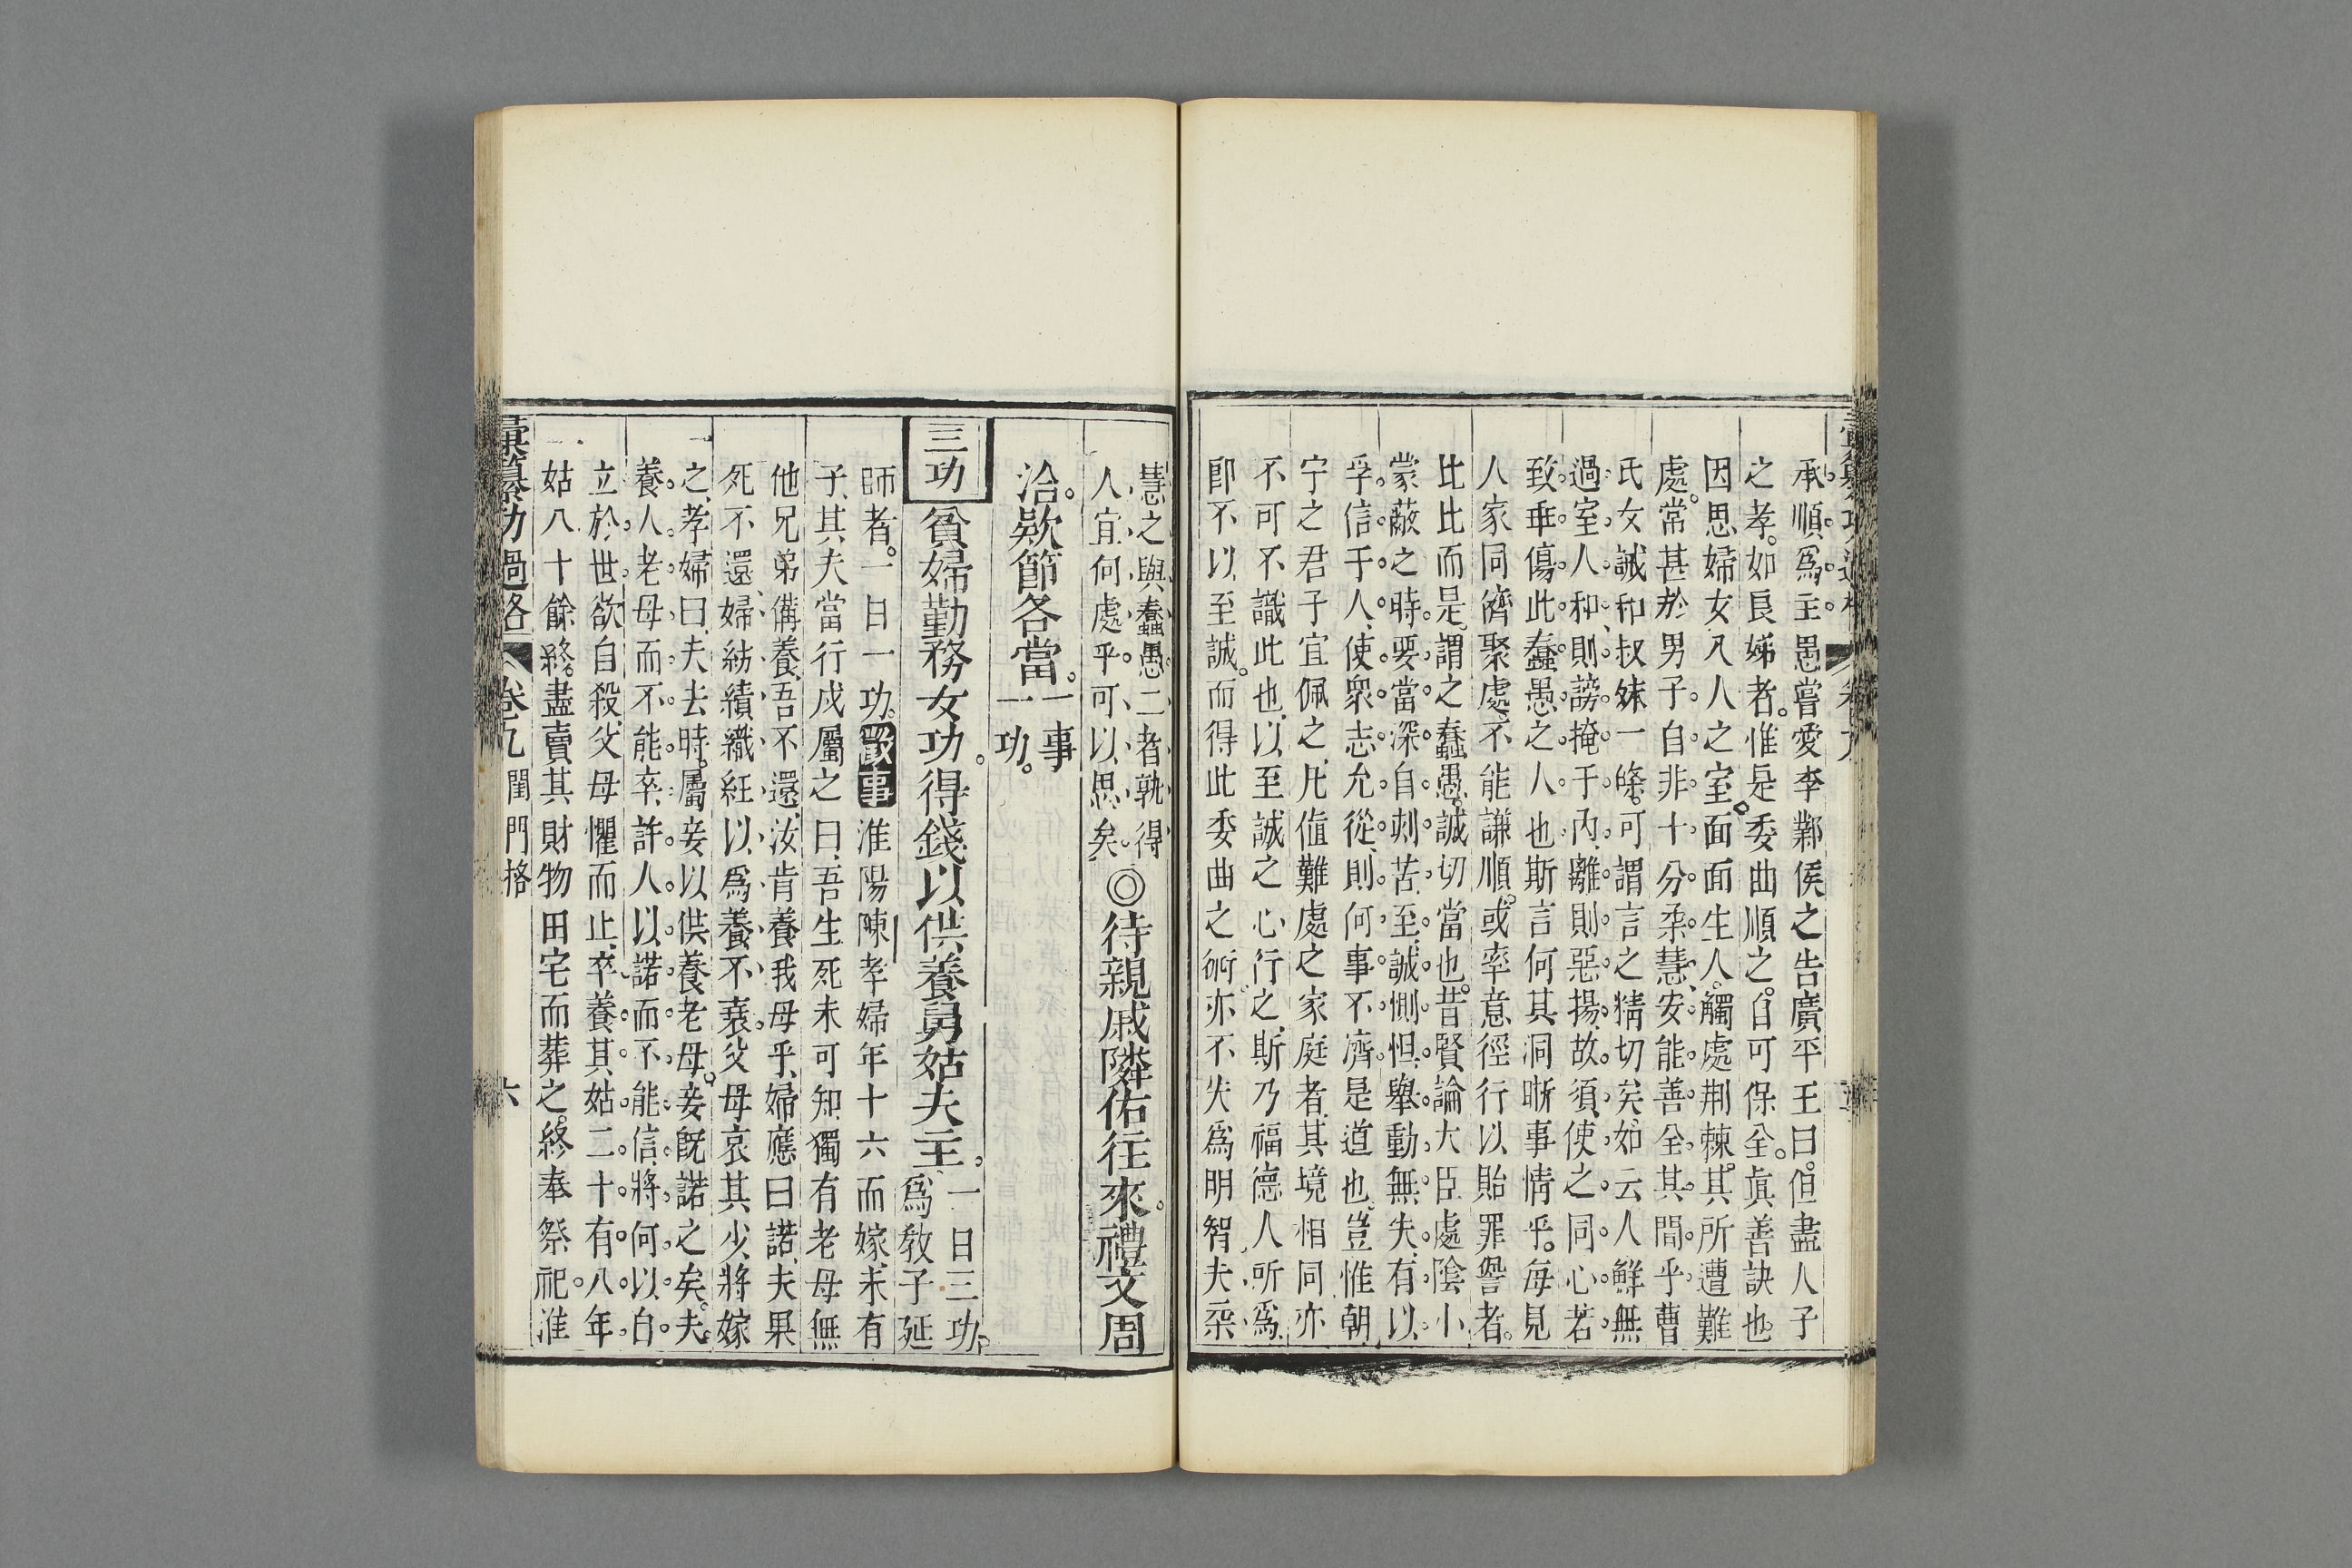 承順爲主。愚嘗愛李鄴侯之告廣平王曰。但盡人子
之孝。如良娣者。惟是委曲順之。自可保全。眞善訣也。
因思婦女入人之室。面面生人。觸處荆棘。其所遭難
處。常甚於男子。自非十分柔慧。安能善全其間乎。曹
氏女誡和叔妹一條。可謂言之精切矣。如云人鮮無
過。室人和則謗掩于內。離則惡揚。故須使之同心。若
致乖傷。此蠢愚之人也。斯言何其洞晰事情乎。每見
人家同儕聚處。不能謙順。或率意徑行。以貽罪譽者。
比比而是。謂之蠢愚。誠切當也。昔賢論大臣處陰小
蒙蔽之時。要當深自刻苦。至誠惻怛。舉動無失。有以
孚信于人。使衆志允從。則何事不濟。是道也。豈惟朝
宁之君子宜佩之。凡值難處之家庭者。其境相同。亦
不可不識此也。以至誠之心行之。斯乃福德人所爲。
卽不以至誠。而得此委曲之術。亦不失爲明智。夫柔
慧之與蠢愚二者孰得
人宜何處乎。可以思矣。
◎待親戚隣佑往來。禮文周
洽。欵節各當。
一事
一功。
三功
貧婦勤務女功。得錢以供養舅姑夫主。
一日三功。
爲教子延
師者。一日一功。徵事淮陽陳孝婦年十六而嫁。未有
子。其夫當行戍。屬之曰。吾生死未可知。獨有老母。無
他兄弟備養。吾不還。汝肯養我母乎。婦應曰諾。夫果
死不還。婦紡績織紝以爲養。不衰。父母哀其少。將嫁
之。孝婦曰。夫去時。屬妾以供養老母。妾既諾之矣。夫
養人老母而不能卒。許人以諾而不能信。將何以
立於世。欲自殺。父母懼而止。卒養其姑二十有八年。
姑八十餘終。盡賣其財物田宅而葬之。終奉祭祀。淮
彙纂功過格 卷九 閨門格 六